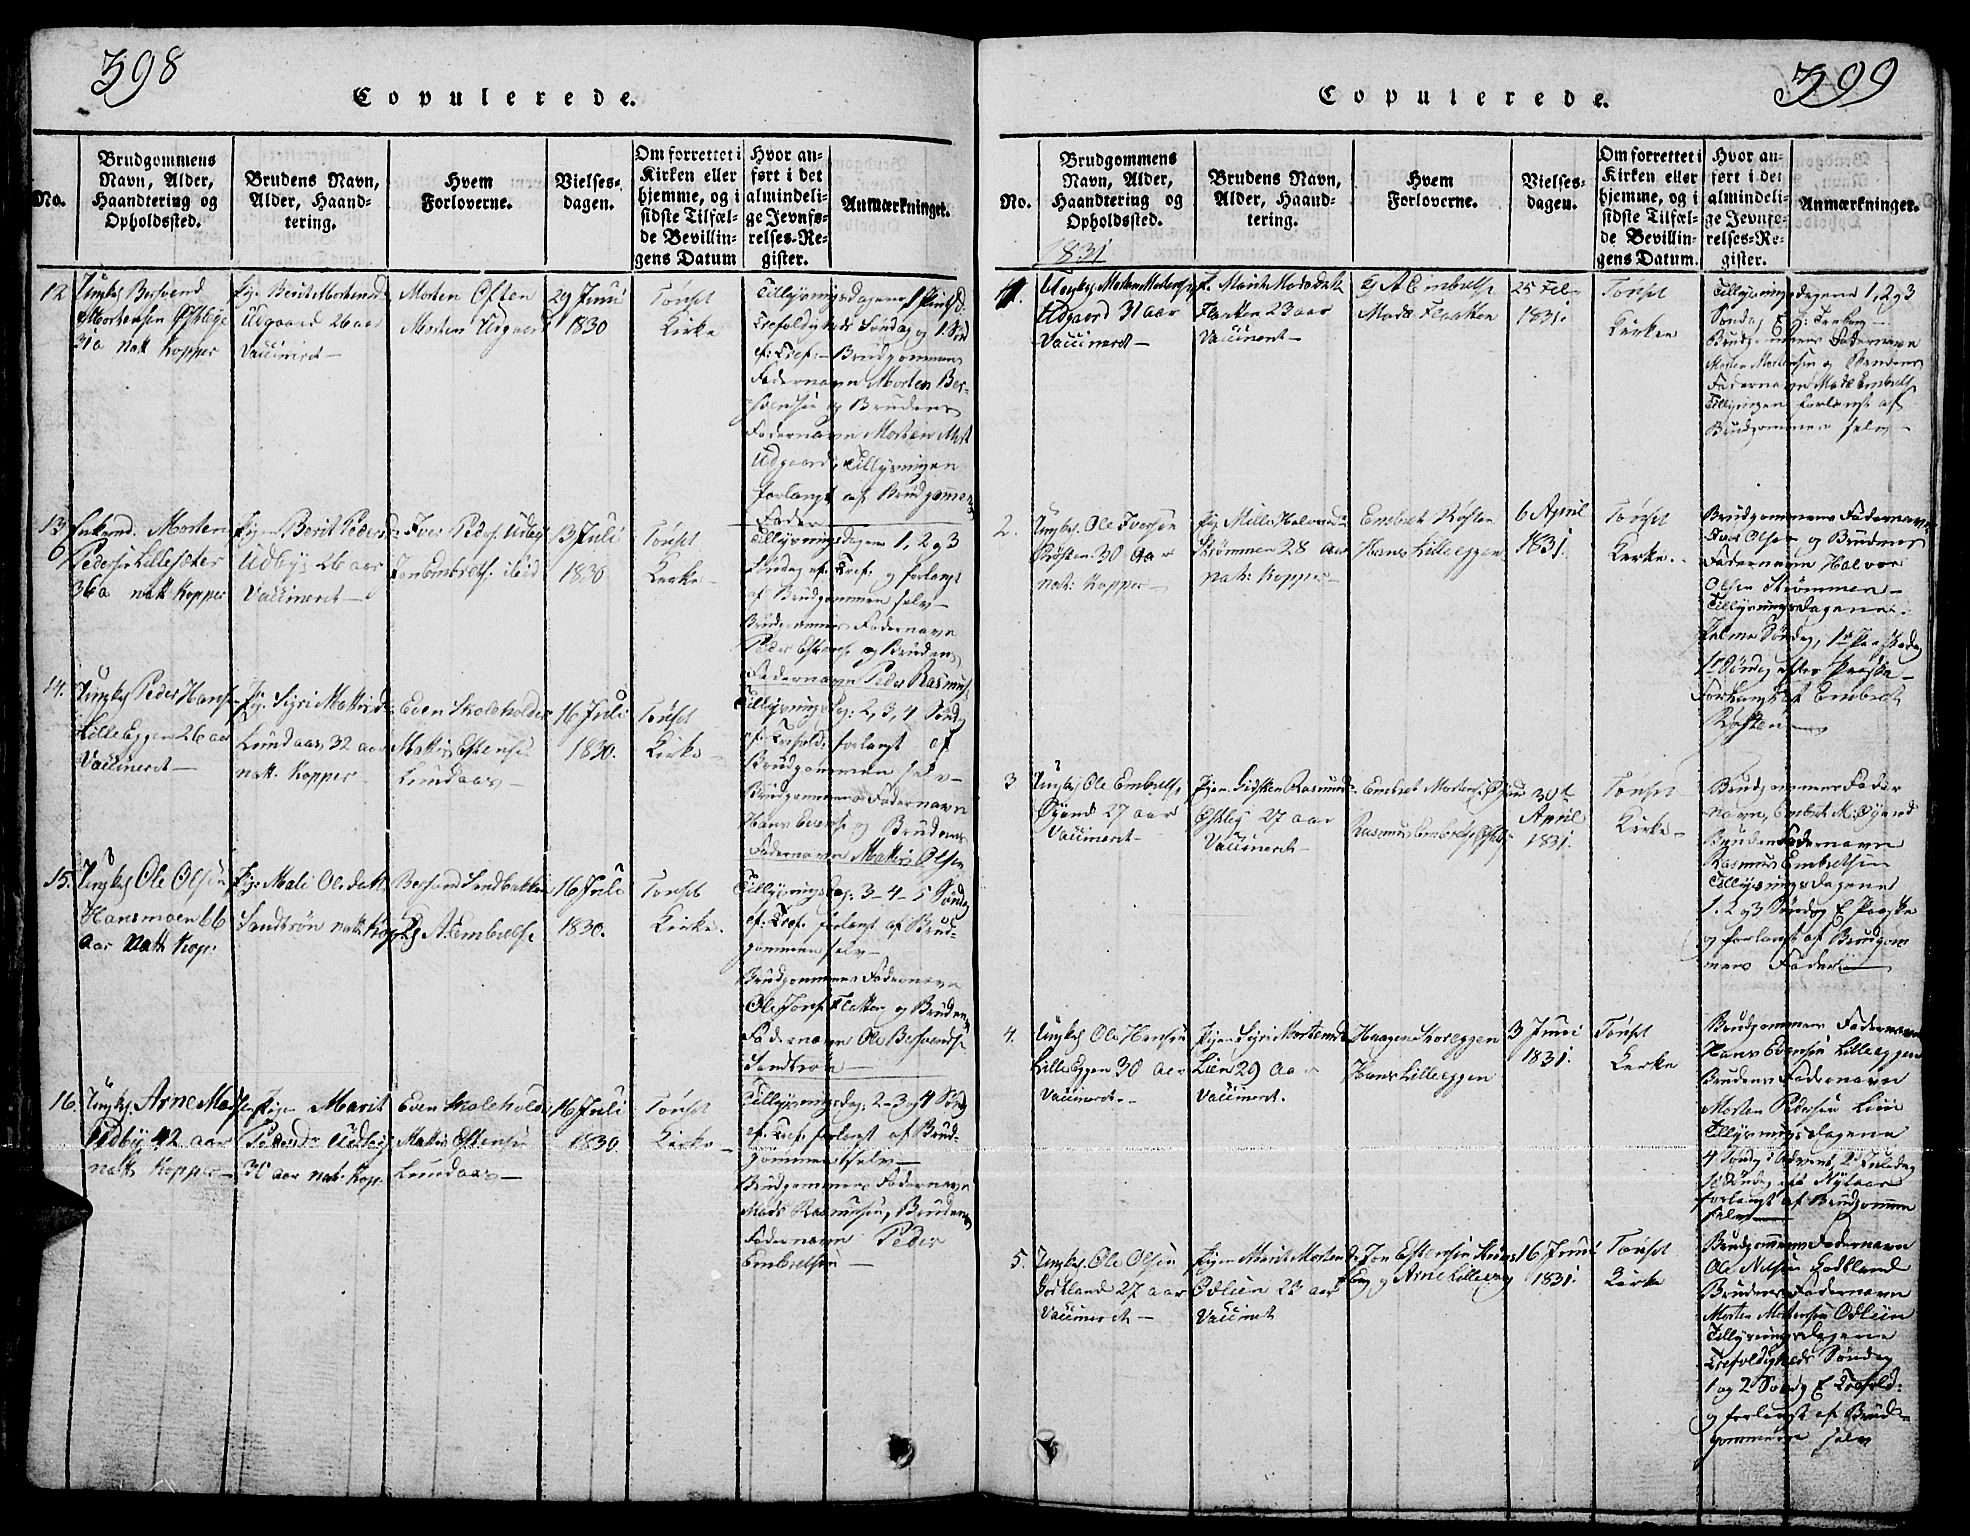 398
Copulerede.
No.
Brudgommens
Navn, Alder,
Haandtering og
Opholdssted.
Brudens Navn,
Alder, Haand-
tering.
Hvem
Forloverne.
Vielses-
dagen.
Om forrettet i
Kirken eller
hjemme, og i
sidste Tilfæl-
de Bevillin-
gens Datum
Hvor an-
ført i det
almindeli-
ge Jevnfø-
relses-Re-
gister.
Anmærkninger.
12
Ungk. Bersvend
Mortensen
31 a natt. Kopper
Pige Berit Mortensd.
Udgaard 26 aar
Vaccineret —
Morten Often
Morten Udgaard
29 Juni
1830
Tønset
Kirke
Tillysningsdagene 1 Pintsd.
Trefoldigheds Søndag og 1 Sønd
ef: Tref: — Brudgommens
Fadernavn Morten Ber-
svendsen og Brudens
Fadernavn Morten Mort
Udgaard, Tillysningen
forlangt af Brudgommens
Fader
13
Enkemd. Morten
Peders: Lillesæter
36 a natt Kopper
Pige Berit Pedersd.
Udbye 26 aar
Vaccineret —
Iver Peders. Udbye
Jon Embretsen ibid
13 Juli
1830
Tønset
Kirke —
Tillysningsdagene 1, 2 og 3
Søndag ef. Tref. og forlangt
af Brudgommen selv —
Brudgommens Fadernavn
Peder Estens. og Brudens
Fadernavn Peder Rasmus
14.
Ungk. Peder Hans.
Lille Eggen 26 aar
Vaccineret —
Pig. Sigri Mattisd.
Lunaas, 32 aar
natt. Kopper
Even Skoleholder
Mattis Estensen
Lunaas —
16 Juli
1830.
Tønset
Kirke —
Tillysningsdag: 2, 3, 4 Søndg
ef. Trefold. forlangt af
Brudgommen selv —
Brudgommens Fadernavn
Hans Evens. og Brudens
Fadernavn Mattis Olsen
15.
Ungk. Ole Olsen
Hansmoen 66
aar Natt. Kop:
Pige Mali Olesdatt.
Sandtrøn natt. Kop.
Bersvend Sandbakken
A. Embretsen
16 Juli
1830.
Tønset
Kirke.
Tillysningsdag: 3 – 4 – 5 Søndg
ef: Tref. forlangt af Brud-
gommen selv —
Brudgommens Fadernavn
Ole Jons. Flatten og Brudens
Fadernavn Ole Bersvends.
Sandtrøn —
16.
Ungk. Arne Mads.
Udby 42 aar
natt. Kopper —
Pige Marit
Pedersdr Udbye
30 aar nat. Kop.
Even Skoleholder
Mattis Estensen
Lunaas —
16 Juli
1830.
Tønset
Kirke —
Tillysningsdag: 2 – 3 og 4 Søndg
ef. Tref. forlangt af Brud-
gommen selv —
Brudgommens Fadernavn
Mads Rasmussen, Brudens
Fadernavn Peder
Embretsen —
399
Copulerede.
No.
Brudgommens
Navn, Alder,
Haandtering og
Opholdssted.
Brudens Navn,
Alder, Haand-
tering.
Hvem
Forloverne.
Vielses-
dagen.
Om forrettet i
Kirken eller
hjemme, og i
sidste Tilfæl-
de Bevillin-
gens Datum.
Hvor an-
ført i det
almindeli-
ge Jevnfø-
relses-Re-
gister.
Anmærkninger.
1831
1.
Ungk. Morten Mortensen
Udgaard 31 aar
Vaccineret —
P. Marit Madsdatt.
Flatten 23 aar
Vaccineret —
A Embrets.
Mads Flatten
25 Feb.
1831.
Tønset
Kirken
Tillysningsdagene 1, 2 og 3
Søndag
Brudgommens Fadernavn
Morten Mortensen og Brudens
Fadernavn Mads Embrets.
Tillysningen forlangt af
Brudgommen selv —
2.
Ungk. Ole Iversen
Røsten 30 Aar
nat: Kopper —
Pig. Mille Halvorsd.
Strømmen 28 Aar
nat: Kopper —
Embret Røsten
Hans Lilleeggen
6 April
1831.
Tønset
Kirke.
Brudgommens Fadernavn
Iver Olsen og Brudens
Fadernavn Halvor
Olsen Strømmen —
Tillysningsdagene.
Palme Søndag, 1ste Paaskedag
1ste Søndag efter Paaske —
Forlanget Embret
Røsten —
3
Ungk. Ole Embrets.
Øyand 27 aar
Vaccineret —
Pigen Gidsken Rasmusd.
Estbye 27 aar
Vaccineret —
Embret Mortens. Øyand
Rasmus Embrets.
30te
April
1831.
Tønset
Kirke —
Brudgommens Fader
navn, Embret M. Øyand
Brudens Fadernavn
Rasmus Embretsen
Tillysningsdagene
1. 2 og 3 Søndag E Paaske
og forlangt af Brudgom
mens Fader —
4.
Ungk. Ole Hansen
Lille Eggen 30 aar
Vaccineret. —
Pigen Sigri Mortensd.
Lien 29 Aar
Vaccineret.
Haagen Storeggen
Hans Lilleeggen
3 Juni
1831.
Tønset
Kirke
Brudgommens Fadernavn
Hans Evensen Lilleeggen
Brudens Fadernavn
Morten Pedersen Lien
Tillysningsdagene
4 Søndg i Advent, 2 Juledag
Søndag Nytaar
forlangt af Brudgommen
selv —
5.
Ungk. Ole Olsen
Godtland 27 aar
Vaccineret —
Pigen Marit Mortensdr
Odlien 23 aar
Vaccinet
Jon Estensen
og Arne Lilleeng
16 Juni
1831.
Tønset
Kirke
Brudgommens Fadernavn
Ole Nilsen Godtland
Brudens Fadernavn
Morten Mortensen Odlien
Tillysningsdagene
Trefoldigheds Søndag
1 og 2 Søndg E Trefold:
og forlangt af Brud-
gommen selv